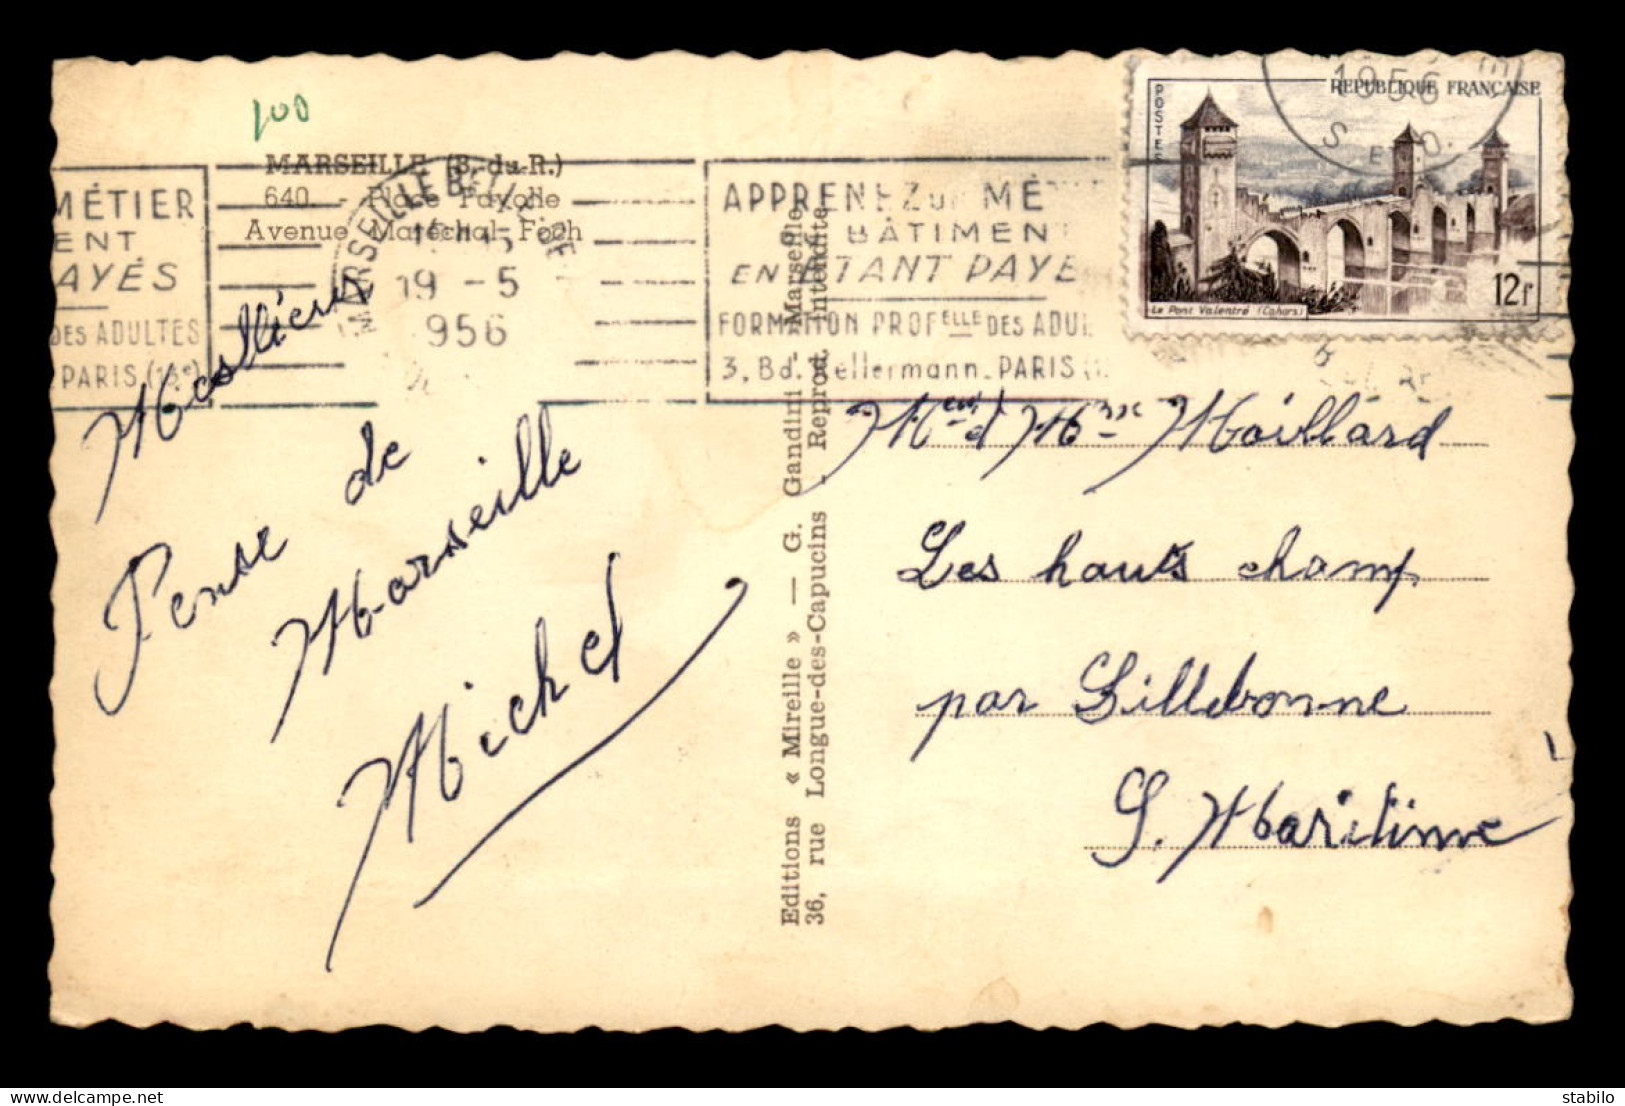 100
MARSEILLE (B.-du-R.)
640. - Place Payolle
Avenue Maréchal Foch
MÉTIER
ENT
AYÉS
DES ADULTES
PARIS (13e)
MARSEILLE
19 -5
956
APPRENEZ UN MÉ
BÂTIMENT
EN ÉTANT PAYÉ
FORMATION PROFELLE DES ADUL
3, Bd. Kellermann. PARIS (1
1956
REPUBLIQUE FRANÇAISE
POSTES
12f
Le Pont Valentré (Cahors)
Pense de
Marseille
Michel
Editions « Mireille » — G. Gandini - Marseille
36, rue Longue-des-Capucins - Reprod. Intendite
Meur et Mme Maillard
Les hauts champ
par Lillebonne
S. Maritime
stabilo